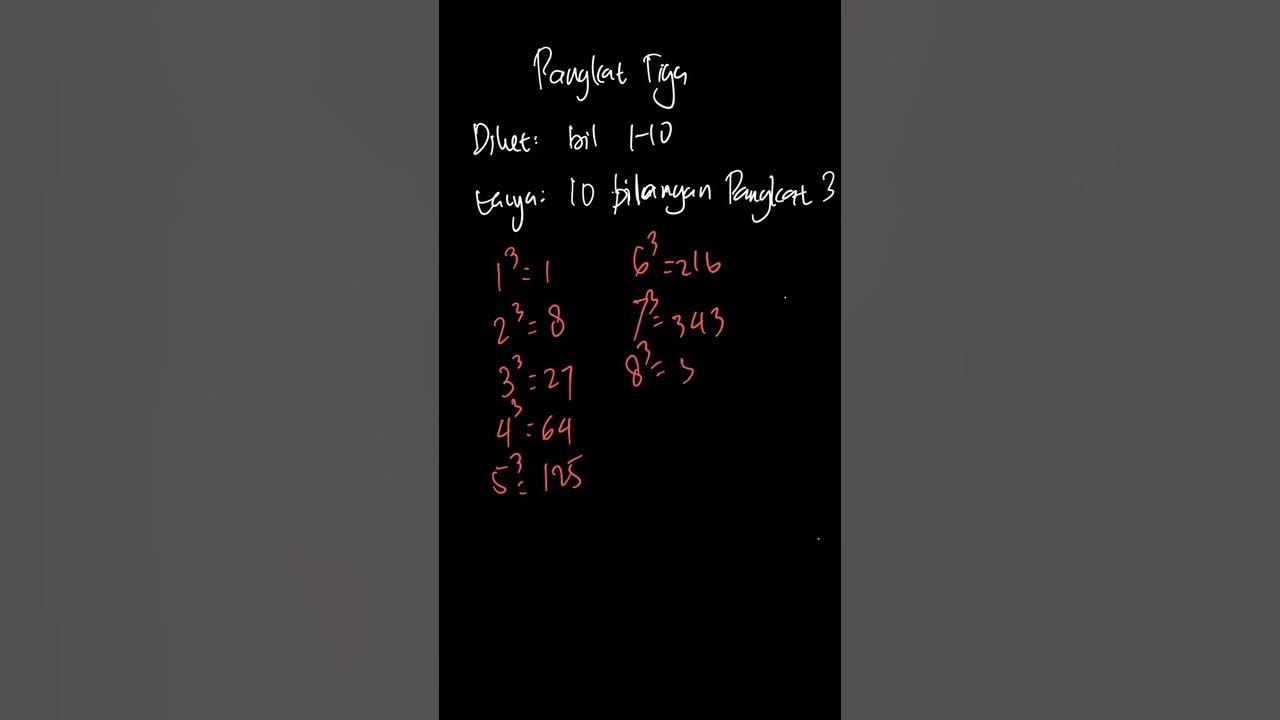 Pangkat Tiga
Diket: bil 1-10
tanya: 10 bilangan Pangkat 3
1³ = 1
2³ = 8
3³ = 27
4³ = 64
5³ = 125
6³ = 216
7³ = 343
8³ = 5